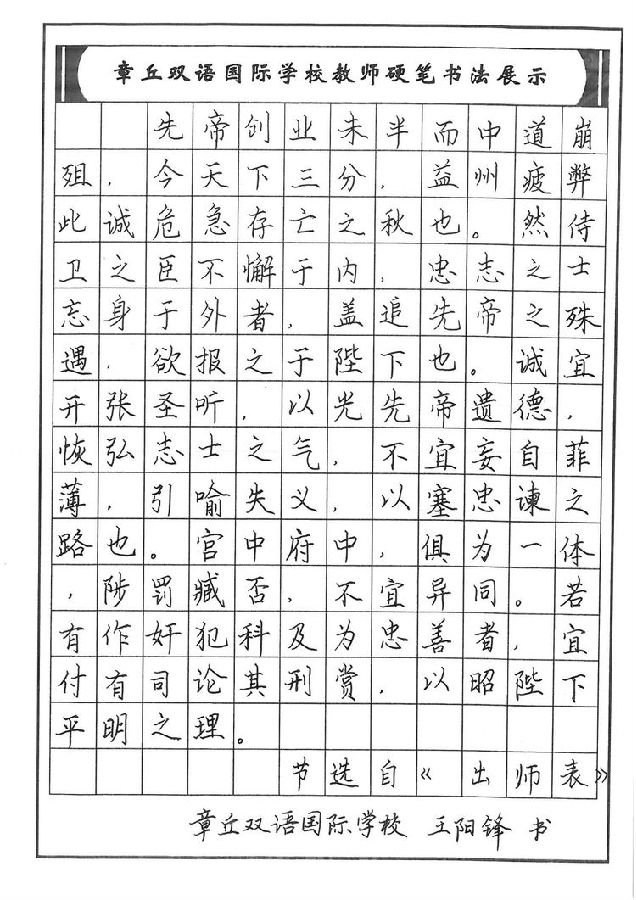 章丘双语国际学校教师硬笔书法展示
先帝创业未半而中道崩
殂，今天下三分，益州疲弊
此诚危急存亡之秋也。然侍
卫之臣不懈于内，忠志之士
忘身于外者，盖追先帝之殊
遇，欲报之于陛下也。诚宜
开张圣听，以光先帝遗德，
恢弘志士之气，不宜妄自菲
薄，引喻失义，以塞忠谏之
路也。宫中府中，俱为一体
，陟罚臧否，不宜异同。若
有作奸犯科及为忠善者，宜
付有司论其刑赏，以昭陛下
平明之理。
节选自《出师表》
章丘双语国际学校 王阳锋 书